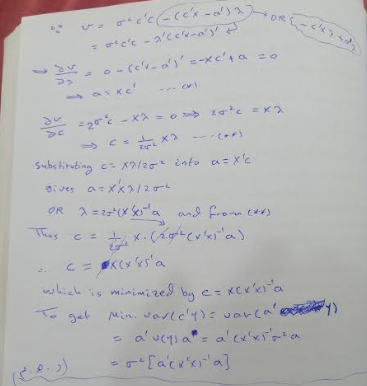 v = σ²c'c - (c'x - a')λ → OR {-c'xλ + a'λ}
= σ²c'c - λ'(c'x - a')'
⇒ ∂v/∂λ = 0 - (c'x - a')' = -xc' + a = 0
⇒ a = xc' ---- (*)
∂v/∂c = 2σ²c - xλ = 0 ⇒ 2σ²c = xλ
⇒ c = 1/2σ² xλ --- (**)
Substituting c = xλ/2σ² into a = x'c
gives a = x'xλ/2σ²
OR λ = 2σ²(x'x)⁻¹a and from (**)
Thus c = 1/2σ² x. (2σ²(x'x)⁻¹a)
∴ c = x(x'x)⁻¹a
which is minimized by c = x(x'x)⁻¹a
To get Min. var(c'y) = var(a' y)
= a'v(y)a = a'(x'x)⁻¹σ²a
= σ²[a'(x'x)⁻¹a]